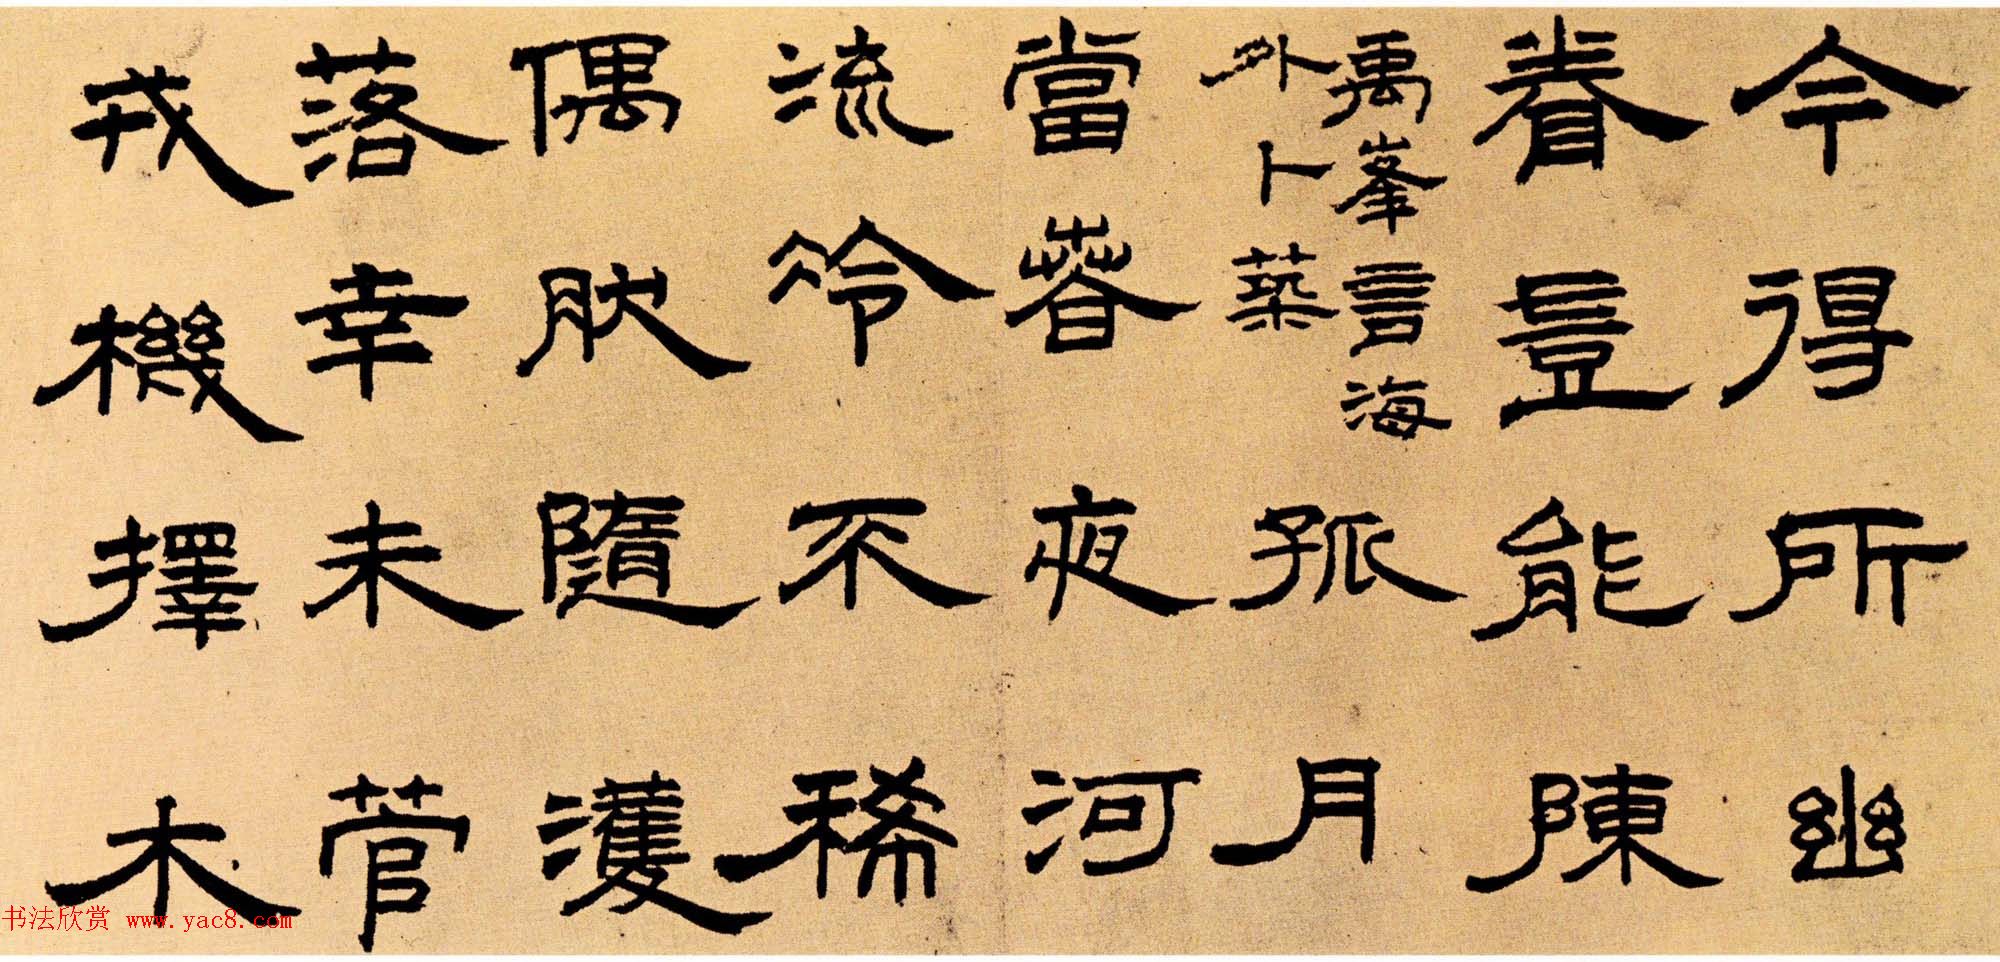 今得所幽
眷豈能陳
禹峯言海
外卜築
孤月
當萅夜河
流冷不稀
偶肰隨濩
落幸未管
戎機擇木
书法欣赏 www.yac8.com